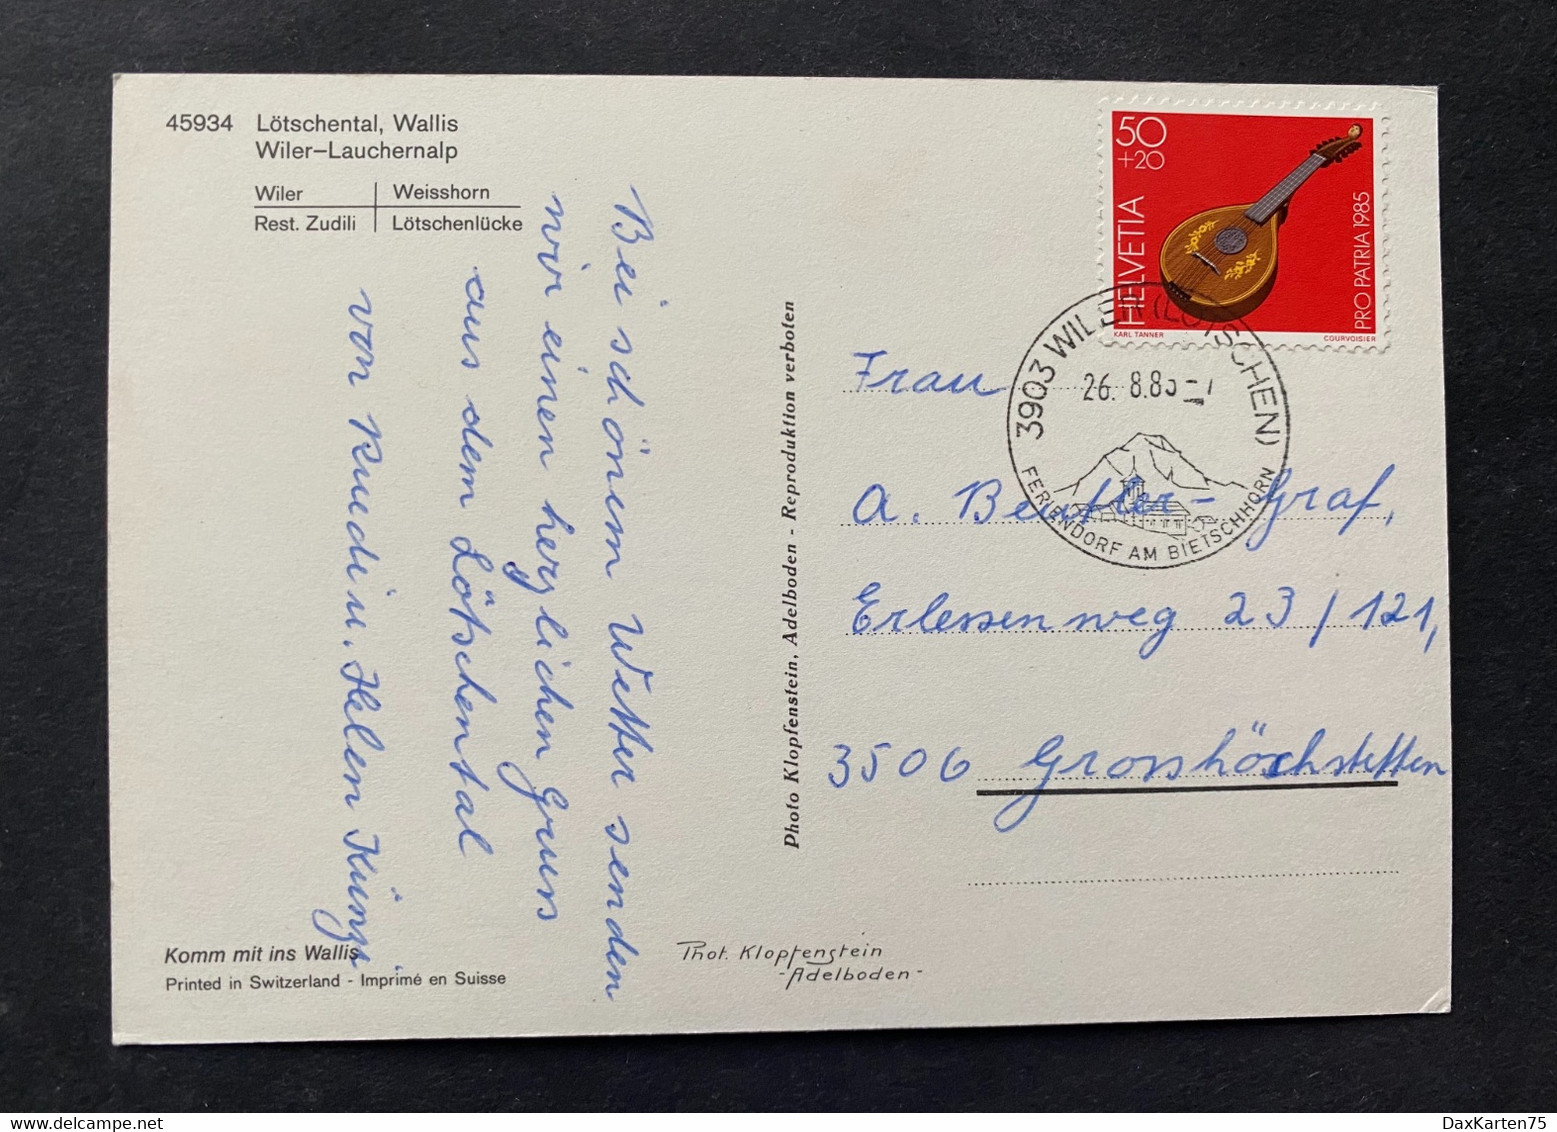 45934 Lötschental, Wallis
Wiler–Lauchernalp
Wiler | Weisshorn
Rest. Zudili | Lötschenlücke
Bei schönem Wetter senden
wir einen herzlichen Gruss
aus dem Lötschental
von Ruedi u. Helen
Komm mit ins Wallis
Printed in Switzerland - Imprimé en Suisse
Photo Klopfenstein, Adelboden - Reproduktion verboten
Phot. Klopfenstein
- Adelboden -
50
+20
HELVETIA
PRO PATRIA 1985
KARL TANNER
COURVOISIER
3903 WILER (LÖTSCHEN)
26. 8.85
FERIENDORF AM BIETSCHHORN
Frau
A. Beutler-Graf,
Erlessenweg 23/121,
3506 Grosshöchstetten
DaxKarten75